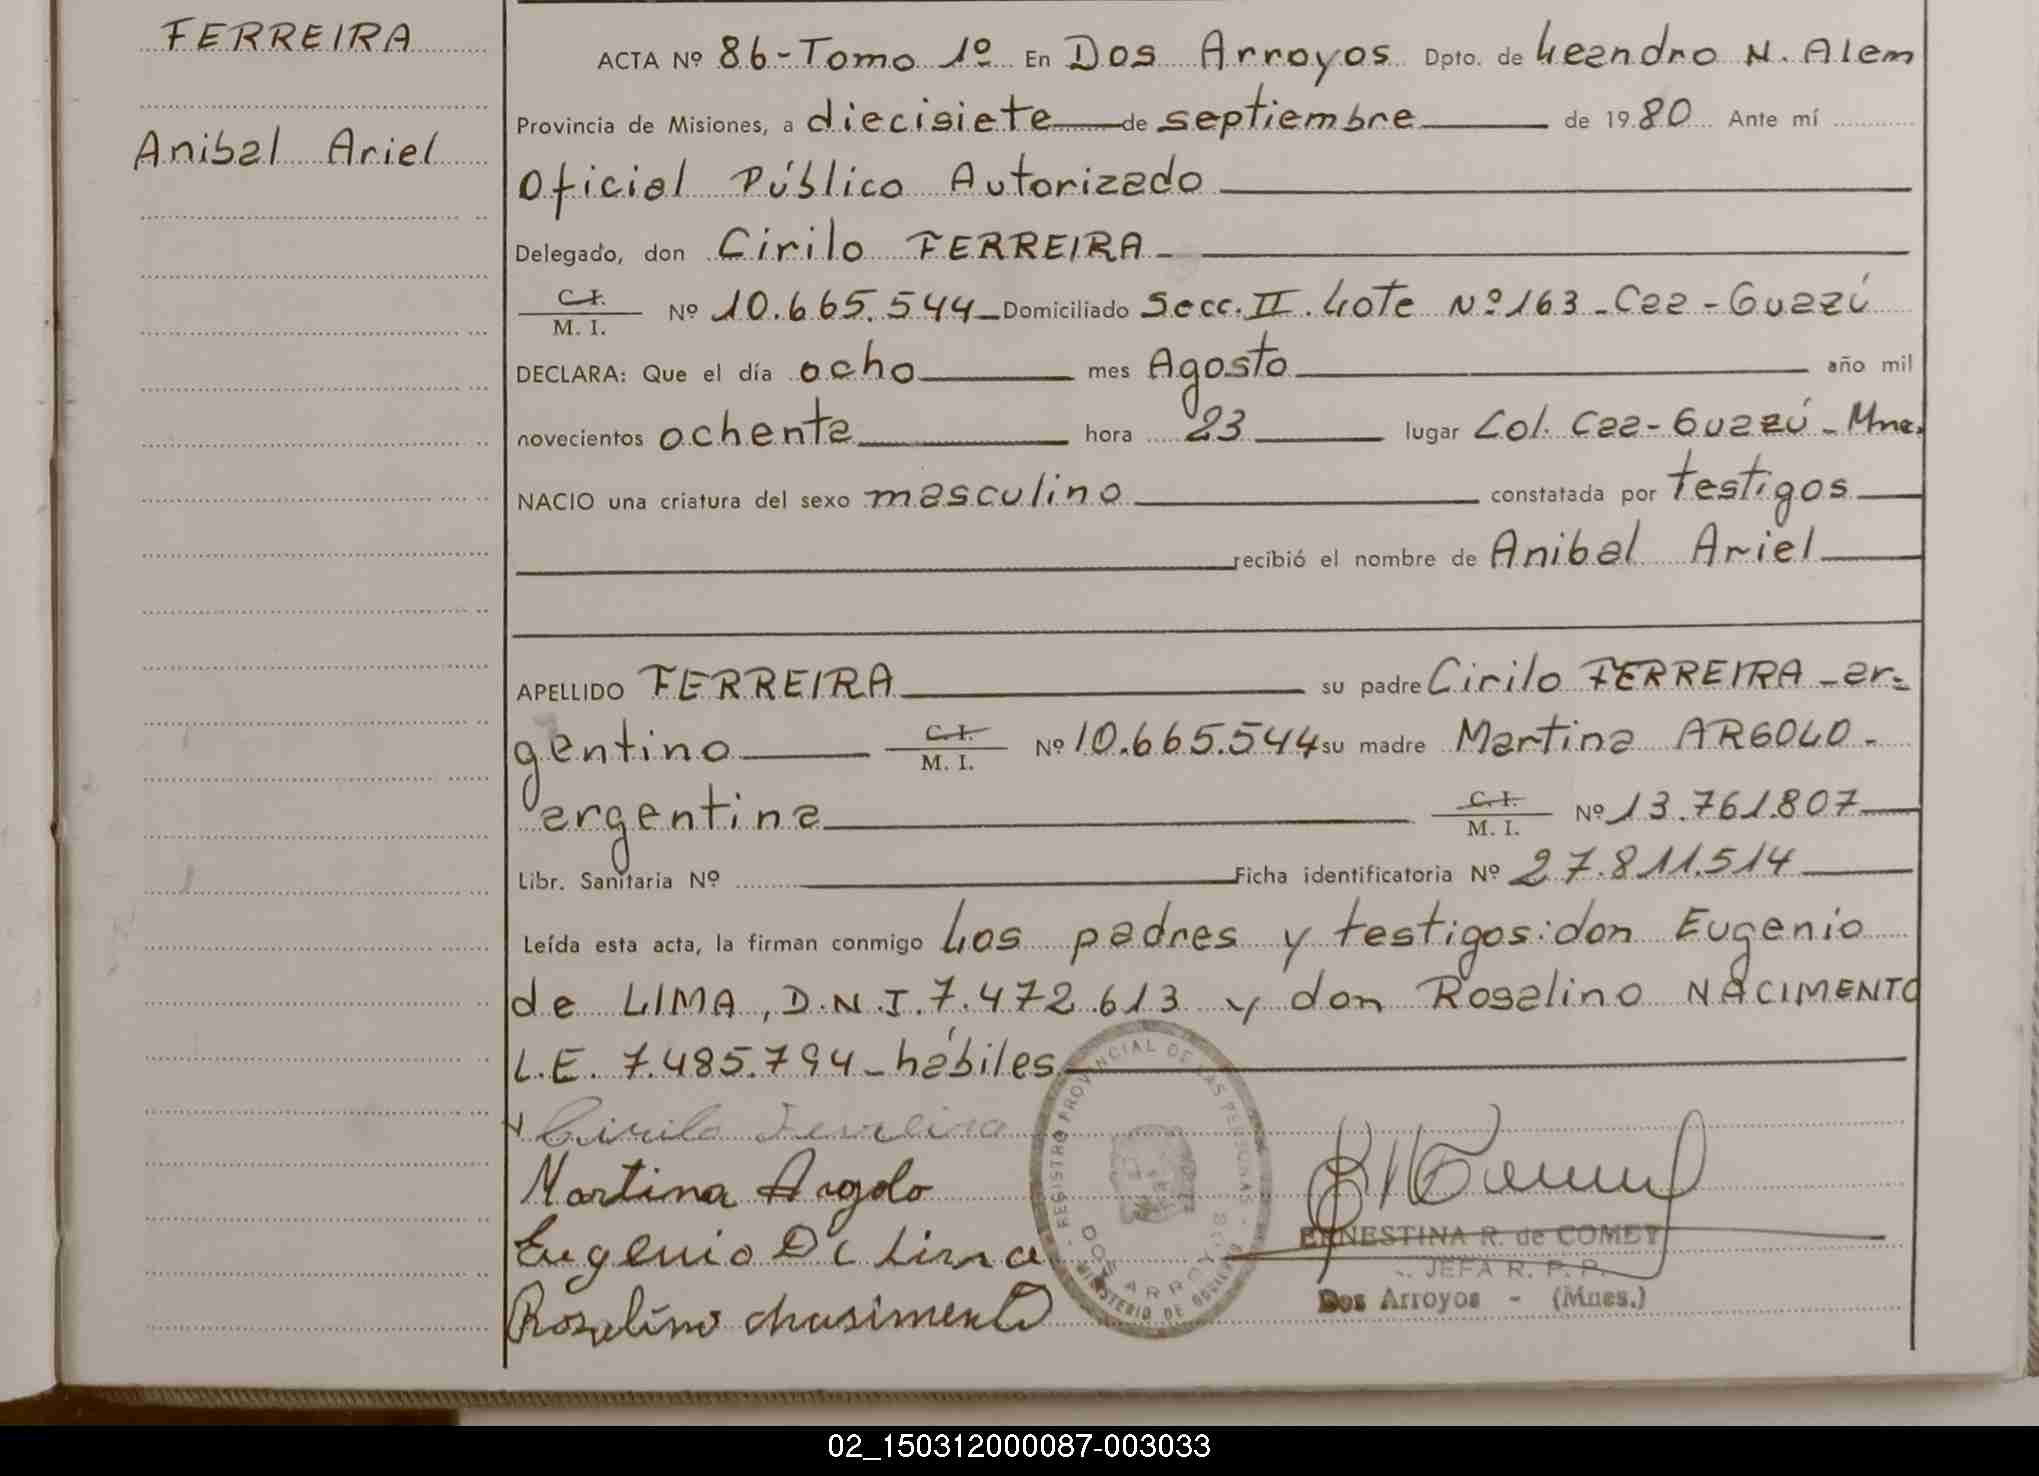 FERREIRA
Anibal Ariel
ACTA Nº 86-Tomo 1º En Dos Arroyos Dpto. de Leandro N. Alem
Provincia de Misiones, a diecisiete de septiembre de 1980 Ante mí
Oficial Público Autorizado
Delegado, don Cirilo FERREIRA
C.I.
M. I. Nº 10.665.544 Domiciliado Secc. II. Lote Nº 163 - Caa - Guazú
DECLARA: Que el día ocho mes Agosto año mil
novecientos ochenta hora 23 lugar Col. Caa-Guazú - Mnes.
NACIO una criatura del sexo masculino constatada por testigos
recibió el nombre de Anibal Ariel
APELLIDO FERREIRA su padre Cirilo FERREIRA - ar-
gentino C.I. M. I. Nº 10.665.544 su madre Martina ARGOLO -
argentina C.I. M. I. Nº 13.761.807
Libr. Sanitaria Nº Ficha identificatoria Nº 27.811.514
Leída esta acta, la firman conmigo Los padres y testigos: don Eugenio
de LIMA, D.N.I. 7.472.613 y don Rosalino NACIMENTO
L.E. 7.485.794 - hábiles
Cirilo Ferreira
Martina Argolo
Eugenio De Lima
Rosalino
REGISTRO PROVINCIAL DE LAS PERSONAS
DOS ARROYOS
MINISTERIO DE GOBIERNO
ERNESTINA R. de COMEY
JEFA R. P. P.
Dos Arroyos - (Mnes.)
02_150312000087-003033